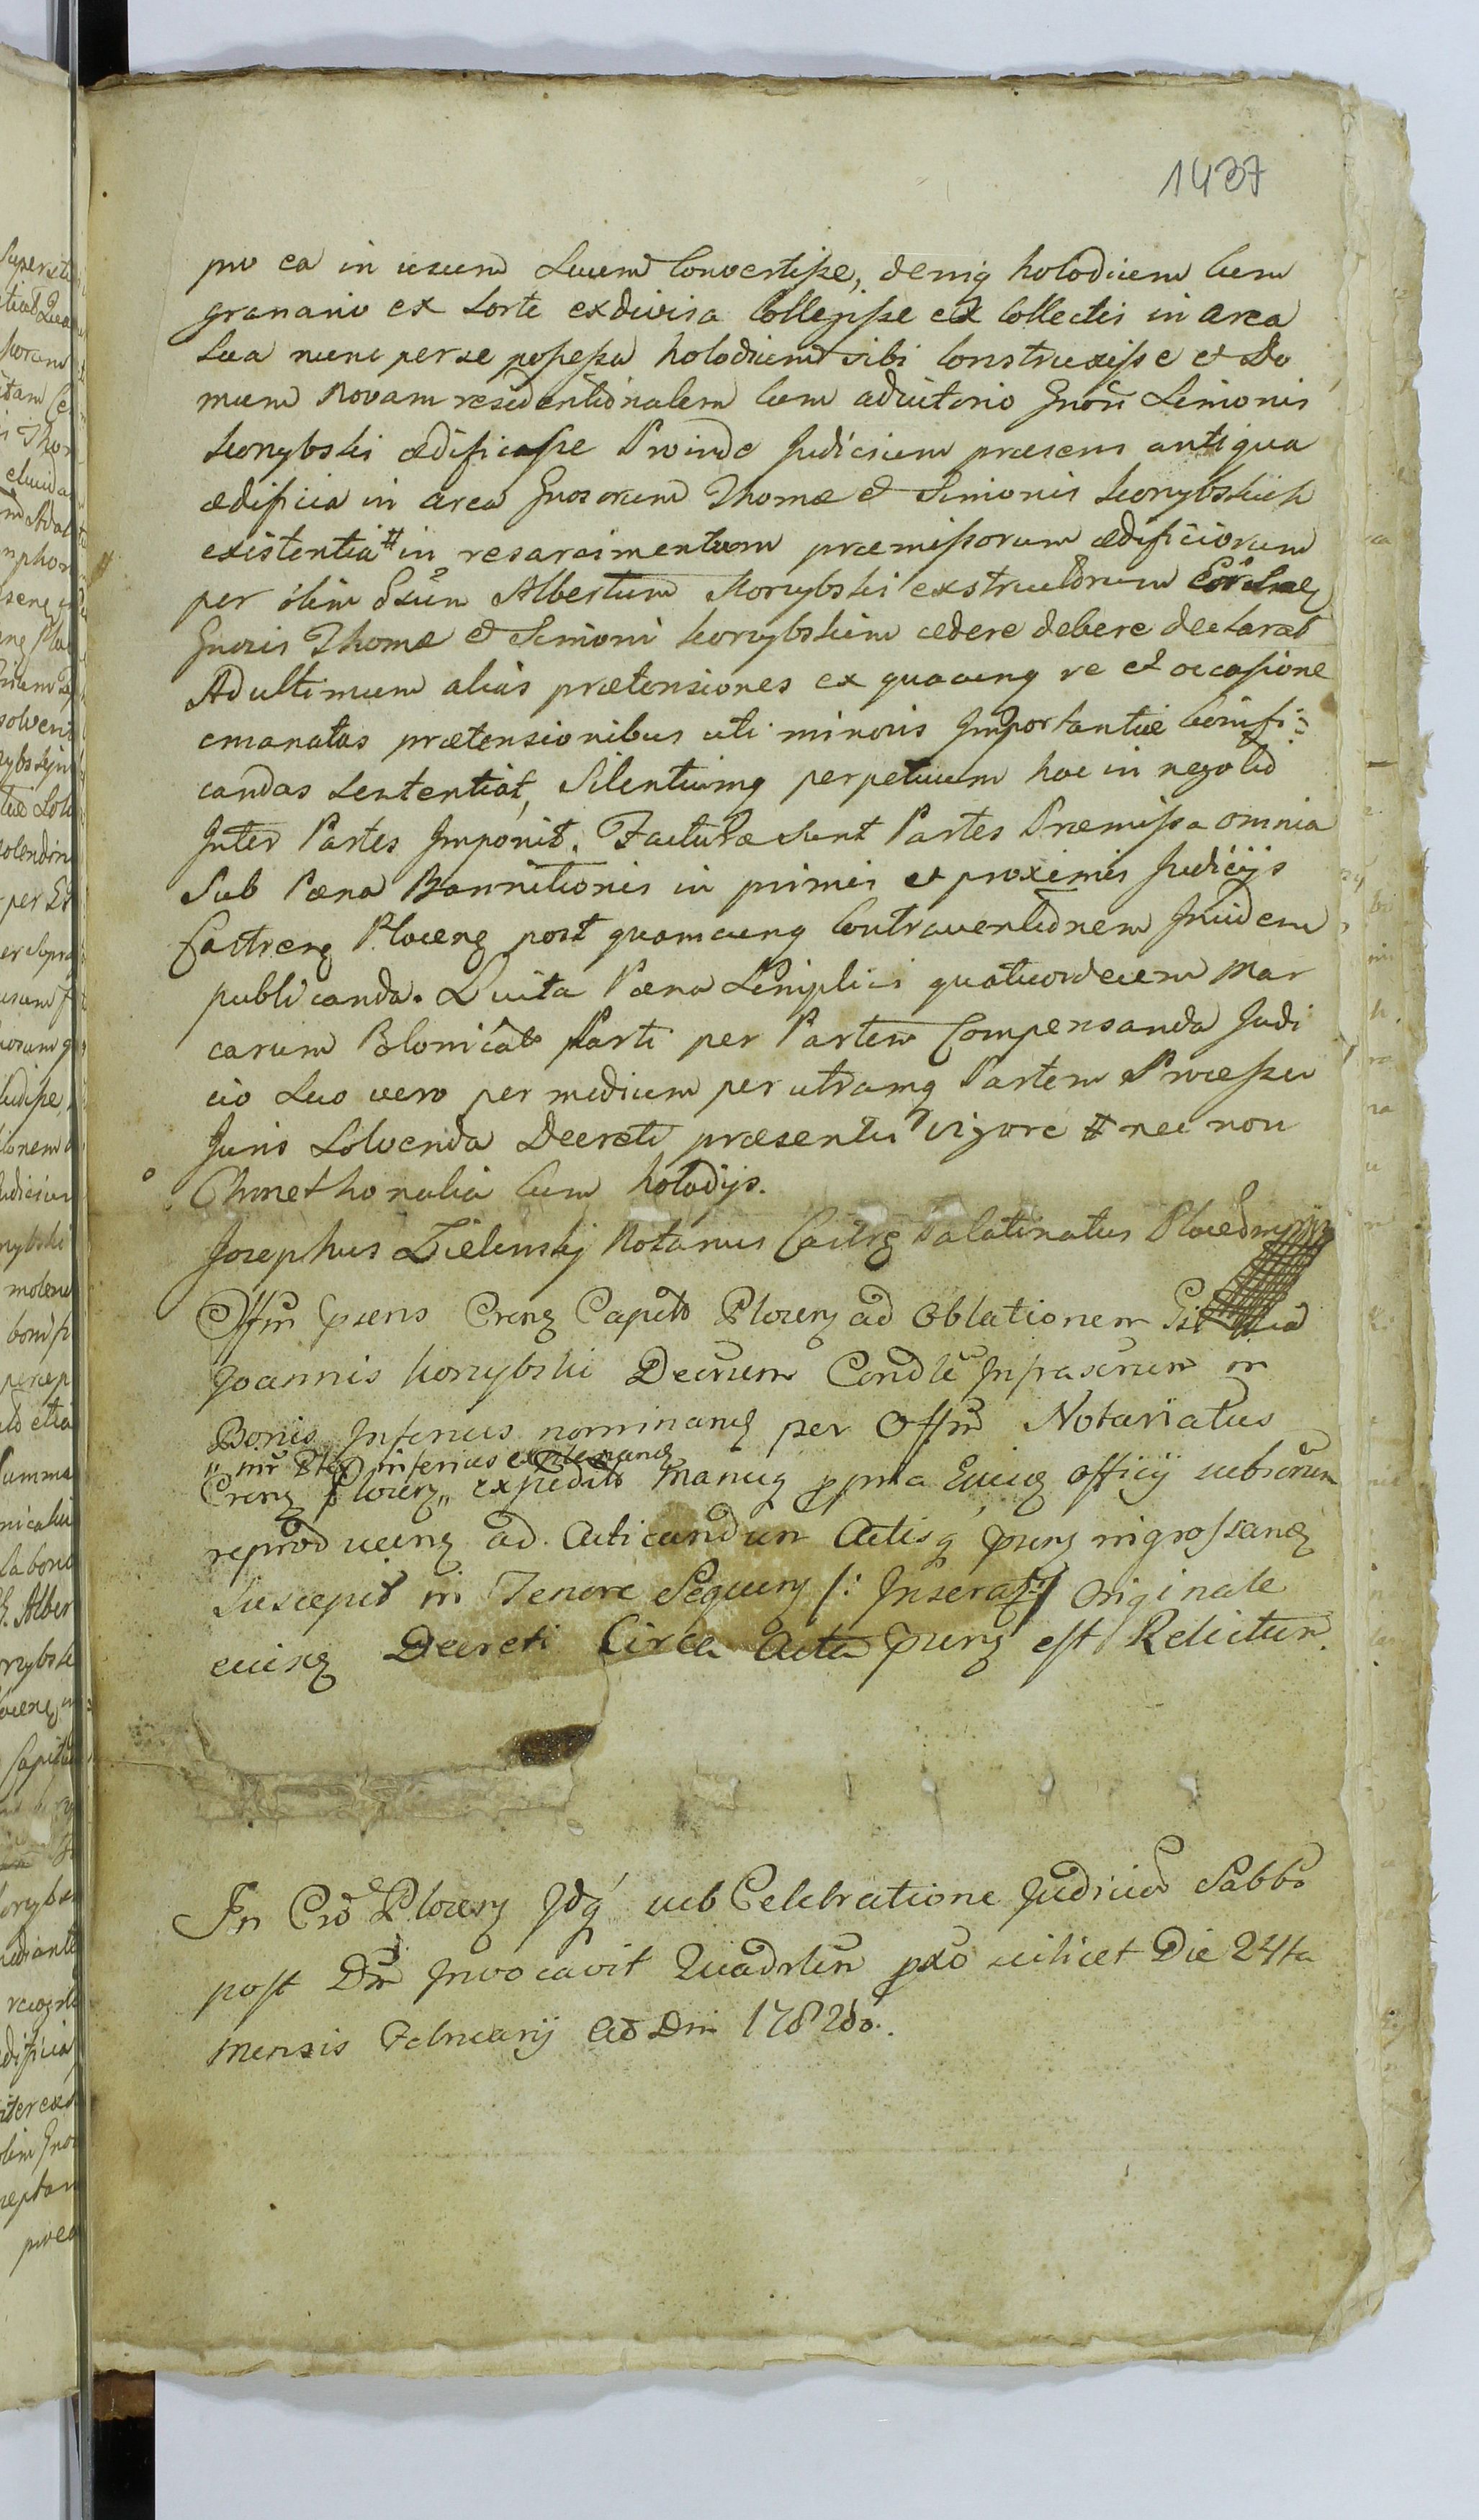 1437
pro ea in usum Suum Convertisse, deniq holodium Cum
granario ex Sorte exdivisa Collegisse ex Collectis in area
Sua nunc per se possessa holodium sibi Construxisse et Do
mum Novam residentionalem Cum adiutorio Gnosi Simonis
Korzybski ædificasse Proinde Judicium præsens antiqua
ædificia in area Gnosorum Thomæ et Simonis Korzybskich
existentia # in resarcimentum præmissorum ædificiorum
per olim Gsum Albertum Korzybski exstructorum
Gnosis Thomæ et Simoni Korzybskim cedere debere declarat
Ad ultimum alias prætensiones ex quacunq re et occasione
emanatas prætensionibus uti minoris Importantiæ bonifi:
candas Sententiat, Silentiumq perpetuum hoc in negotio
Inter Partes Imponit. Facturæ Sunt Partes Præmissa omnia
Sub Pæna Bannitionis in primis et proximis Judicijs
Castrens Plocens post quamcunq Contraventionem Inibidem
publicanda. Luita Pæna Simplici quatuordecem Mar
carum Polonical Parti per Partem Compensanda Judi
cio Suo vero per medium per utramq Partem Processu
Juris Solvenda Decreti præsentis Vigore # nec non
Chmethonalia Cum holodijs.
Josephus Zielinskj Notarius Castrs Palatinatus Plocens
Offm Prens Crens Capit Plocens ad Oblationem
Joannis Korzybski Decrum Condle Infrascrum in
Bonis Inferius nominans per Offm Notariatus
" inferius
Crens Plocens " expedit Manuq ppria Eiusq Officij subscrum
reproducens ad Acticandum Actisq prens ingrossans
Suscepit in Tenore Sequens /: Inserat :/ Originale
eiusq Decreti Circa Acta prens est Relictum.
In Cro Plocens Idq sub Celebratione Judiciors Sabbo
post Dm Invocavit Quadrlem pxo scilicet Die 24ta
Mensis Februarij Ao Dni 1782do.